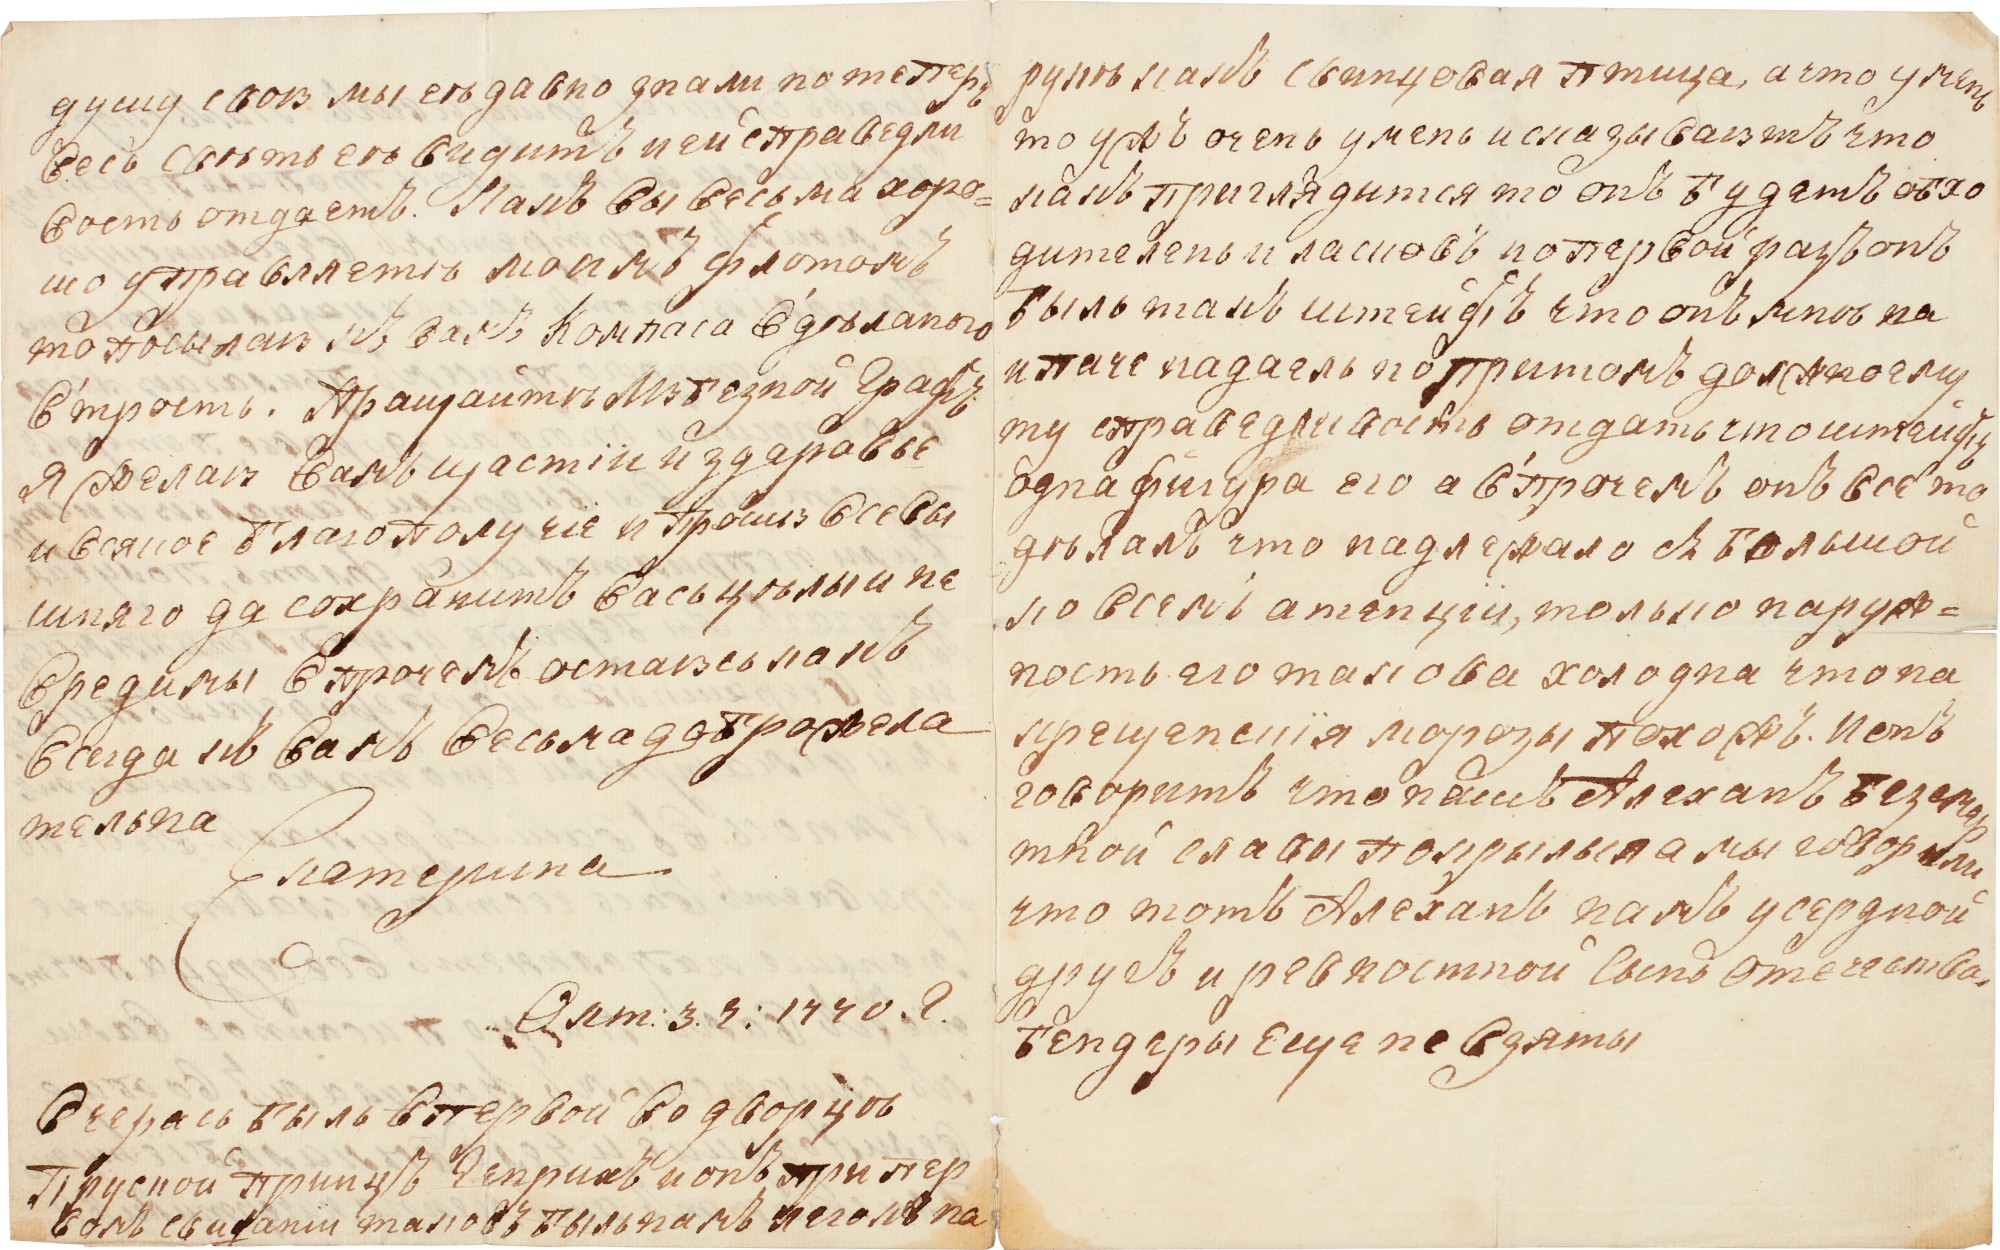 душу свою мы ее давно знали но теперь
весь светь ее видитъ и ей справедли
вость отдаетъ. Какъ вы весьма хоро=
шо управляете моимъ флотомъ
то посылаю къ вамъ компаса вделаного
в трость. Пращайте Любезной Графъ.
Я желаю вамъ щастiи и здаровье
и всякое благополучiе и прошю всевы
шняго да сохранитъ васъ целы и не
вредимы впрочемъ остаюсь какъ
всегда къ вамъ весьма доброжела
тельна
Екатерина
Окт: 3. ч: 1770. г.
Вчерась былъ впервой во дворце
Пруской принцъ Генрихъ и онъ при пер
вомъ свиданiи таковъ былъ намъ легокъ на
руке какъ свинцовая птица, а что уменъ
то ужъ очень уменъ и сказываютъ что
какъ приглядится то онъ будетъ обхо
дителенъ и ласковъ но первой разъ онъ
былъ такъ штейфъ что онъ мне на
иначе надаелъ но притомъ должно ему
ту справедливость отдать что штейфъ
одна фигура его а в прочемъ онъ все то
делалъ что надлежало съ большой
ко всемъ атенцiи, только наруж=
ность его такова холодна что на
крещенскiя морозы похожъ. И онъ
говоритъ что нашъ Алеханъ безсмер
тной славы покрылься а мы говорили
что тотъ Алеханъ намъ усердной
другъ и ревностной сынъ отечества.
Бендеры еще не взяты